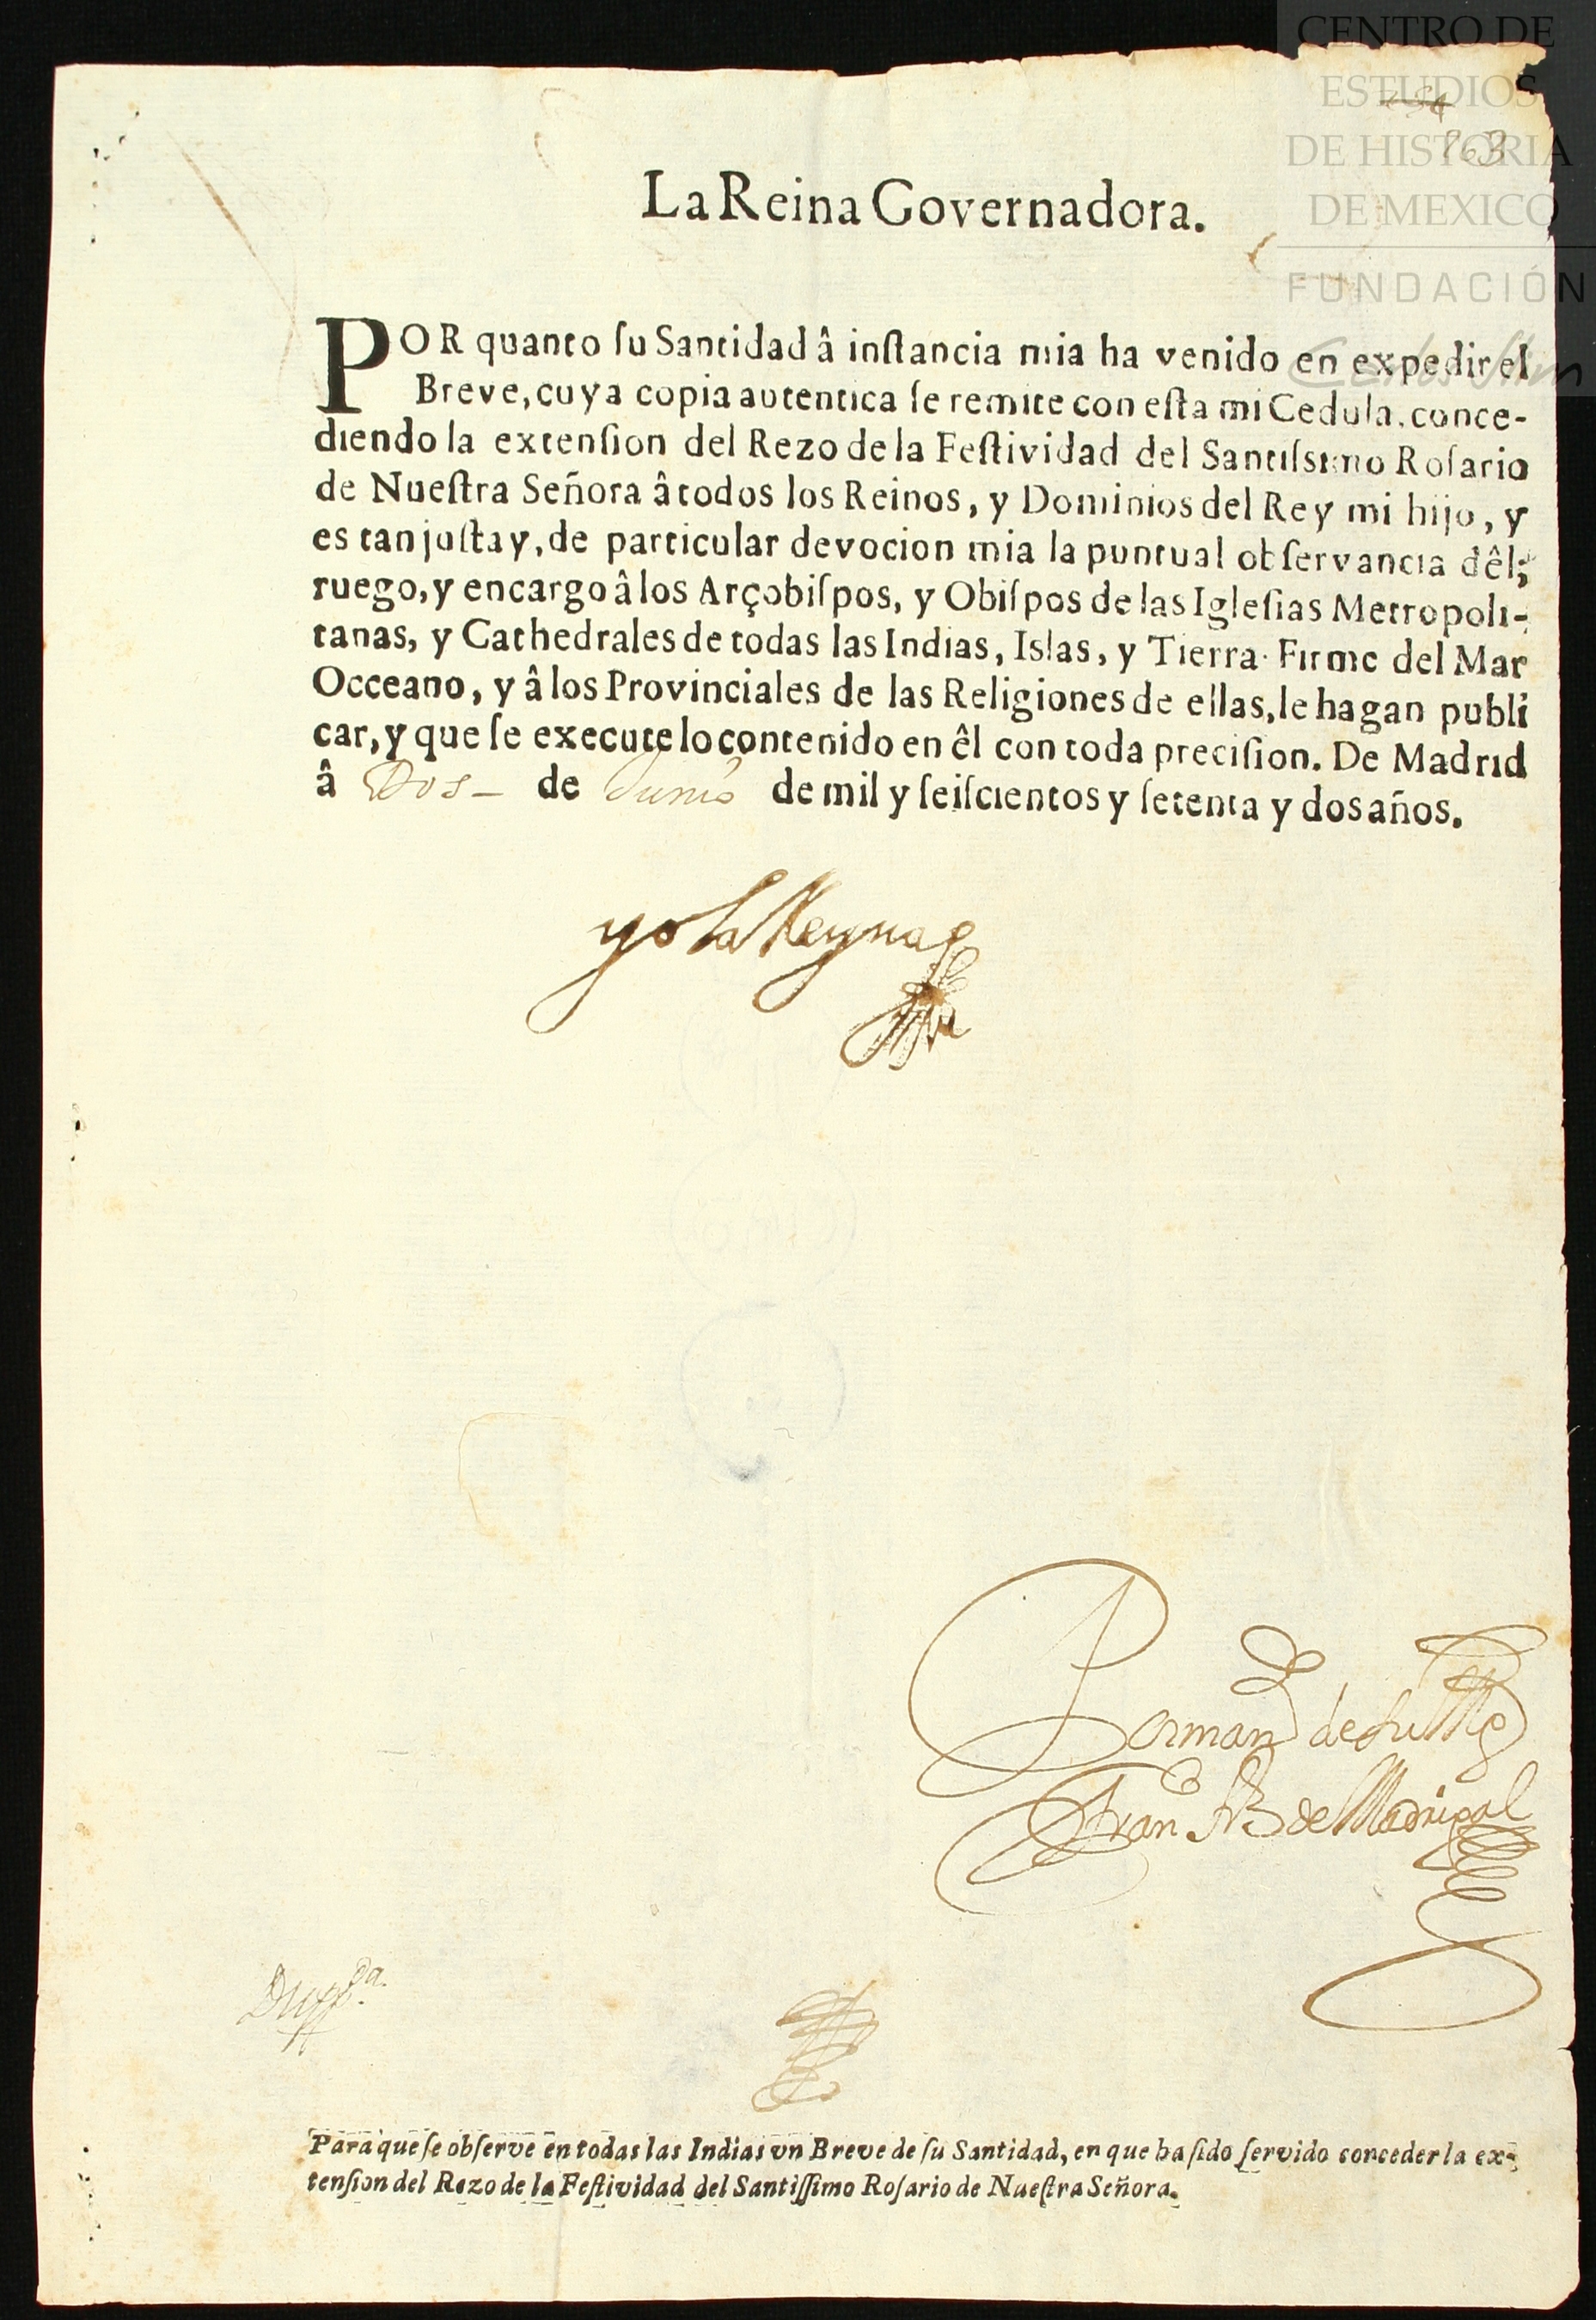 CENTRO DE
ESTUDIOS
DE HISTORIA
DE MEXICO
FUNDACIÓN
Carlos Slim
163
La Reina Governadora.
POR quanto ſu Santidad â inſtancia mia ha venido en expedir el
Breve, cuya copia autentica ſe remite con eſta mi Cedula, conce-
diendo la extenſion del Rezo de la Feſtividad del Santiſsimo Roſario
de Nueſtra Señora â todos los Reinos, y Dominios del Rey mi hijo, y
es tan juſta y, de particular devocion mia la puntual obſervancia dêl;
ruego, y encargo â los Arçobiſpos, y Obiſpos de las Igleſias Metropoli-
tanas, y Cathedrales de todas las Indias, Islas, y Tierra-Firme del Mar
Occeano, y â los Provinciales de las Religiones de ellas, le hagan publi
car, y que ſe execute lo contenido en êl con toda preciſion. De Madrid
â Dos - de Junio de mil y ſeiſcientos y ſetenta y dos años.
yo la Reyna
Por mand de su Mg
Fran de Madrigal
Para que ſe obſerve en todas las Indias vn Breve de ſu Santidad, en que ha ſido ſervido conceder la ex-
tenſion del Rezo de la Feſtividad del Santiſſimo Roſario de Nueſtra Señora.